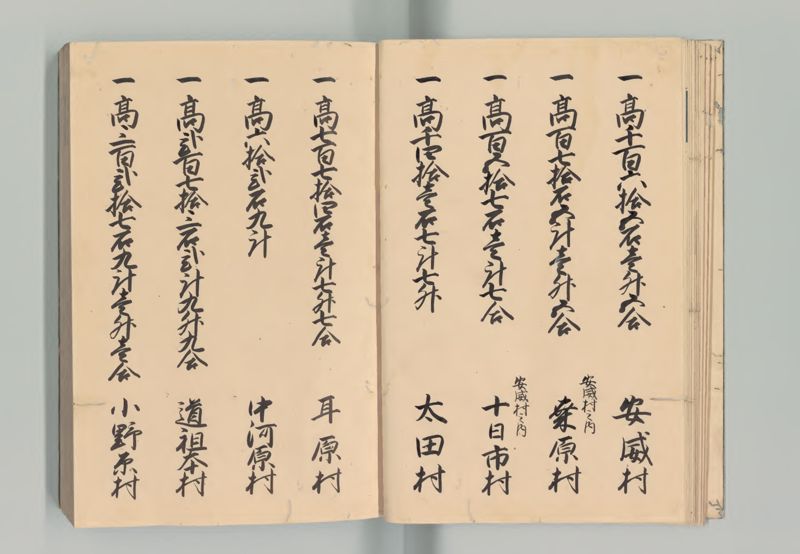 一高千百六拾五石壱升五合 安威村
一高百七拾石五斗壱升五合 安威村之内 桑原村
一高百八拾七石壱斗七合 安威村之内 十日市村
一高千四拾壱石七斗七升 太田村
一高七百七拾四石壱斗七升七合 耳原村
一高六拾弐石九斗 中河原村
一高弐百七拾三石弐斗九升九合 道祖本村
一高三百弐拾七石九斗壱升壱合 小野原村